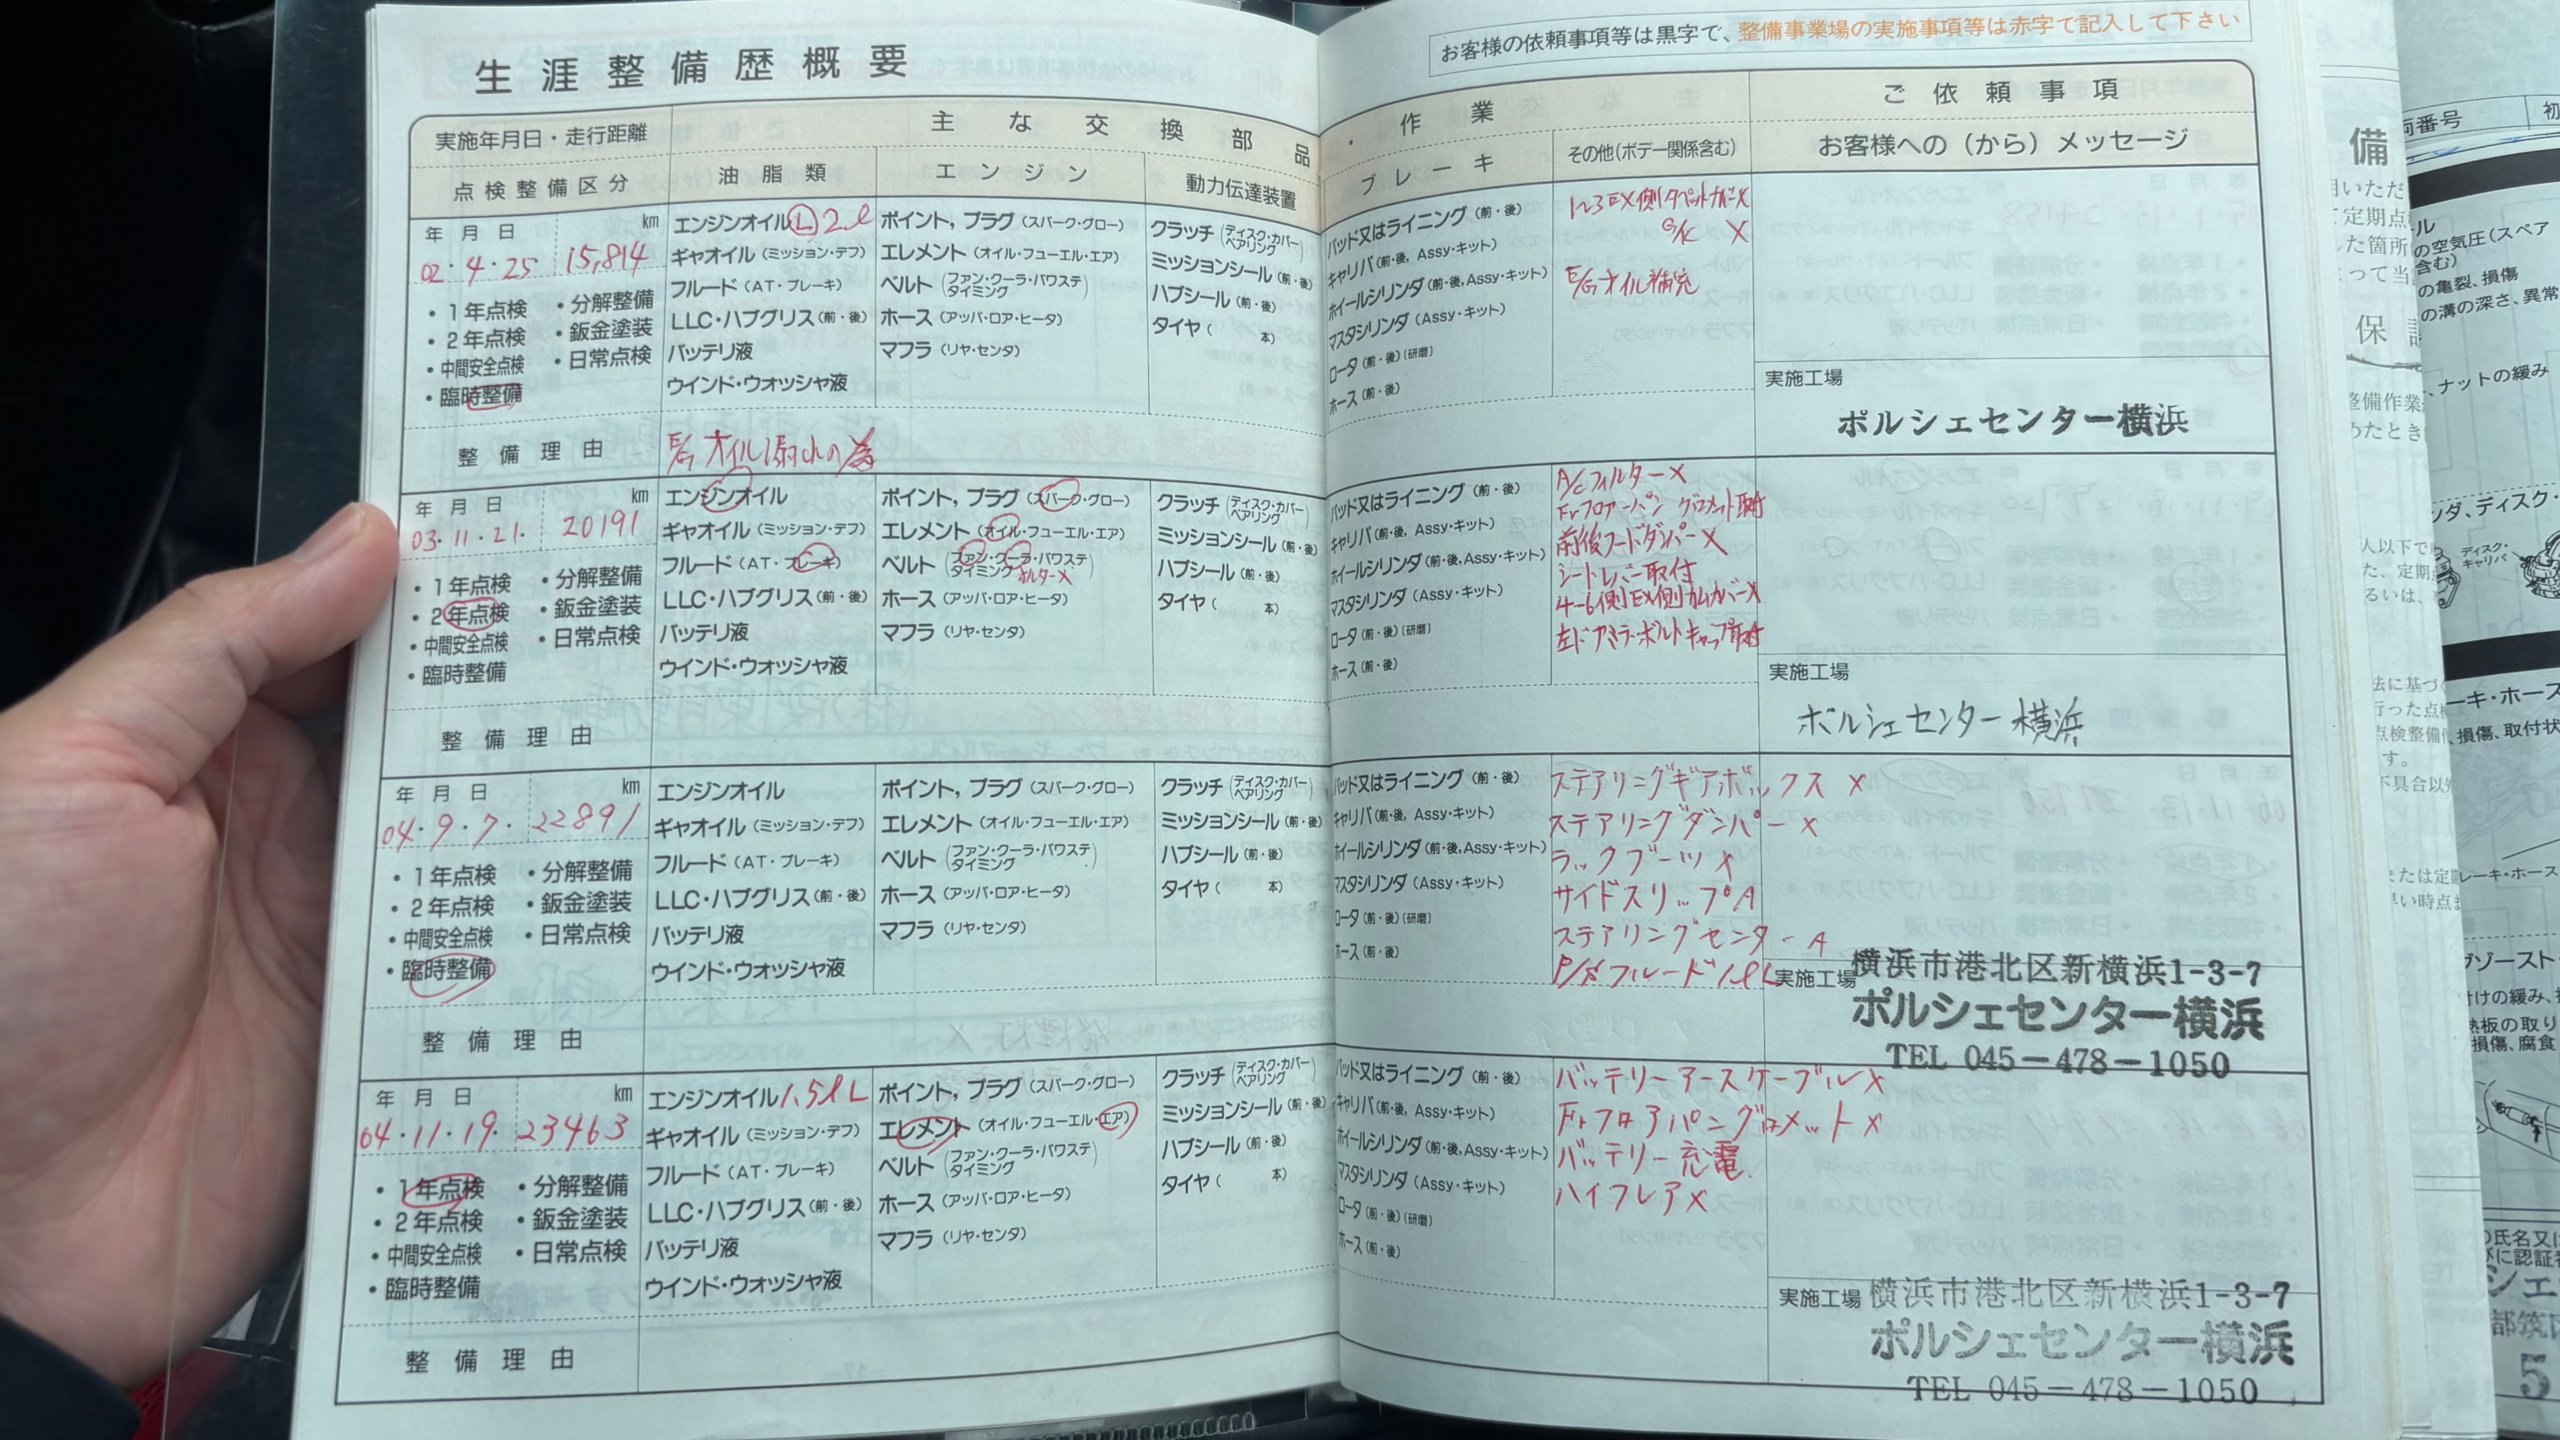 生涯整備歴概要
お客様の依頼事項等は黒字で、整備事業場の実施事項等は赤字で記入して下さい
実施年月日・走行距離
主な交換部品・作業
ご依頼事項
点検整備区分
油脂類
エンジン
動力伝達装置
ブレーキ
その他(ボデー関係含む)
お客様への(から)メッセージ
年 月 日 km
02・4・25 15,814
・1年点検 ・分解整備
・2年点検 ・鈑金塗装
・中間安全点検 ・日常点検
・臨時整備
エンジンオイル Ⓛ 2ℓ
ギヤオイル(ミッション・デフ)
フルード(AT・ブレーキ)
LLC・ハブグリス(前・後)
バッテリ液
ウインド・ウォッシャ液
ポイント, プラグ(スパーク・グロー)
エレメント(オイル・フューエル・エア)
ベルト(ファン・クーラ・パワステ タイミング)
ホース(アッパ・ロア・ヒータ)
マフラ(リヤ・センタ)
クラッチ(ディスク・カバー ベアリング)
ミッションシール(前・後)
ハブシール(前・後)
タイヤ( 本)
パッド又はライニング(前・後)
キャリパ(前・後, Assy・キット)
ホイールシリンダ(前・後, Assy・キット)
マスタシリンダ(Assy・キット)
ロータ(前・後)(研磨)
ホース(前・後)
1~3 EX側タペットカバーX
G/K X
E/Gオイル補充
実施工場
ポルシェセンター横浜
整備理由
E/Gオイル漏れの為
年 月 日 km
03・11・21. 20191
・1年点検 ・分解整備
・2年点検 ・鈑金塗装
・中間安全点検 ・日常点検
・臨時整備
エンジンオイル
ギヤオイル(ミッション・デフ)
フルード(AT・ブレーキ)
LLC・ハブグリス(前・後)
バッテリ液
ウインド・ウォッシャ液
ポイント, プラグ(スパーク・グロー)
エレメント(オイル・フューエル・エア)
ベルト(ファン・クーラ・パワステ タイミング)
ホース(アッパ・ロア・ヒータ)
マフラ(リヤ・センタ)
クラッチ(ディスク・カバー ベアリング)
ミッションシール(前・後)
ハブシール(前・後)
タイヤ( 本)
パッド又はライニング(前・後)
キャリパ(前・後, Assy・キット)
ホイールシリンダ(前・後, Assy・キット)
マスタシリンダ(Assy・キット)
ロータ(前・後)(研磨)
ホース(前・後)
A/CフィルターX
Frフロアーパン グロメット取付
前後フードダンパーX
シートレバー取付
4-6側EX側カムカバーX
左ドアミラーボルトキャップ取付
実施工場
ポルシェセンター横浜
整備理由
年 月 日 km
04・9・7・22891
・1年点検 ・分解整備
・2年点検 ・鈑金塗装
・中間安全点検 ・日常点検
・臨時整備
エンジンオイル
ギヤオイル(ミッション・デフ)
フルード(AT・ブレーキ)
LLC・ハブグリス(前・後)
バッテリ液
ウインド・ウォッシャ液
ポイント, プラグ(スパーク・グロー)
エレメント(オイル・フューエル・エア)
ベルト(ファン・クーラ・パワステ タイミング)
ホース(アッパ・ロア・ヒータ)
マフラ(リヤ・センタ)
クラッチ(ディスク・カバー ベアリング)
ミッションシール(前・後)
ハブシール(前・後)
タイヤ( 本)
パッド又はライニング(前・後)
キャリパ(前・後, Assy・キット)
ホイールシリンダ(前・後, Assy・キット)
マスタシリンダ(Assy・キット)
ロータ(前・後)(研磨)
ホース(前・後)
ステアリングギアボックス X
ステアリングダンパー X
ラックブーツ X
サイドスリップ A
ステアリングセンター A
P/Sフルード1ℓL
実施工場
横浜市港北区新横浜1-3-7
ポルシェセンター横浜
TEL 045-478-1050
整備理由
年 月 日 km
04・11・19・23463
・1年点検 ・分解整備
・2年点検 ・鈑金塗装
・中間安全点検 ・日常点検
・臨時整備
エンジンオイル 1.5ℓL
ギヤオイル(ミッション・デフ)
フルード(AT・ブレーキ)
LLC・ハブグリス(前・後)
バッテリ液
ウインド・ウォッシャ液
ポイント, プラグ(スパーク・グロー)
エレメント(オイル・フューエル・エア)
ベルト(ファン・クーラ・パワステ タイミング)
ホース(アッパ・ロア・ヒータ)
マフラ(リヤ・センタ)
クラッチ(ディスク・カバー ベアリング)
ミッションシール(前・後)
ハブシール(前・後)
タイヤ( 本)
パッド又はライニング(前・後)
キャリパ(前・後, Assy・キット)
ホイールシリンダ(前・後, Assy・キット)
マスタシリンダ(Assy・キット)
ロータ(前・後)(研磨)
ホース(前・後)
バッテリーアースケーブルX
Frフロアパングロメット X
バッテリー充電
ハイフレア X
実施工場
横浜市港北区新横浜1-3-7
ポルシェセンター横浜
TEL 045-478-1050
整備理由